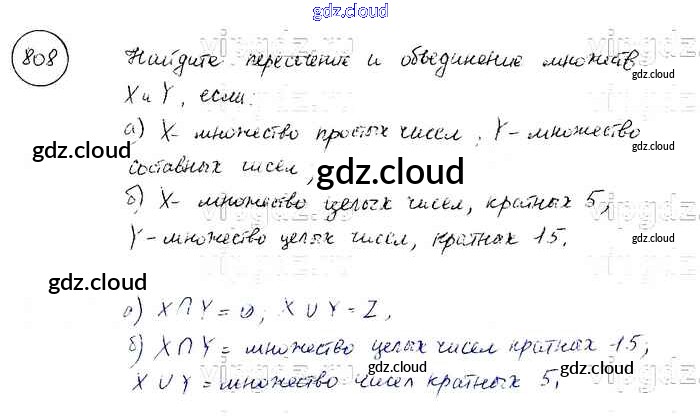 gdz.cloud
808
Найдите пересечение и объединение множеств
gdz.cloud
X и Y, если:
а) X- множество простых чисел, Y- множество
gdz.cloud
gdz.cloud
составных чисел,
gdz.cloud
б) X- множество целых чисел, кратных 5;
gdz.cloud
Y- множество целых чисел, кратных 15.
gdz.cloud
gdz.cloud
а) X∩Y=∅, X∪Y=Z,
б) X∩Y= множество целых чисел кратных 15;
gdz.cloud
X∪Y= множество чисел кратных 5.
gdz.cloud
gdz.cloud